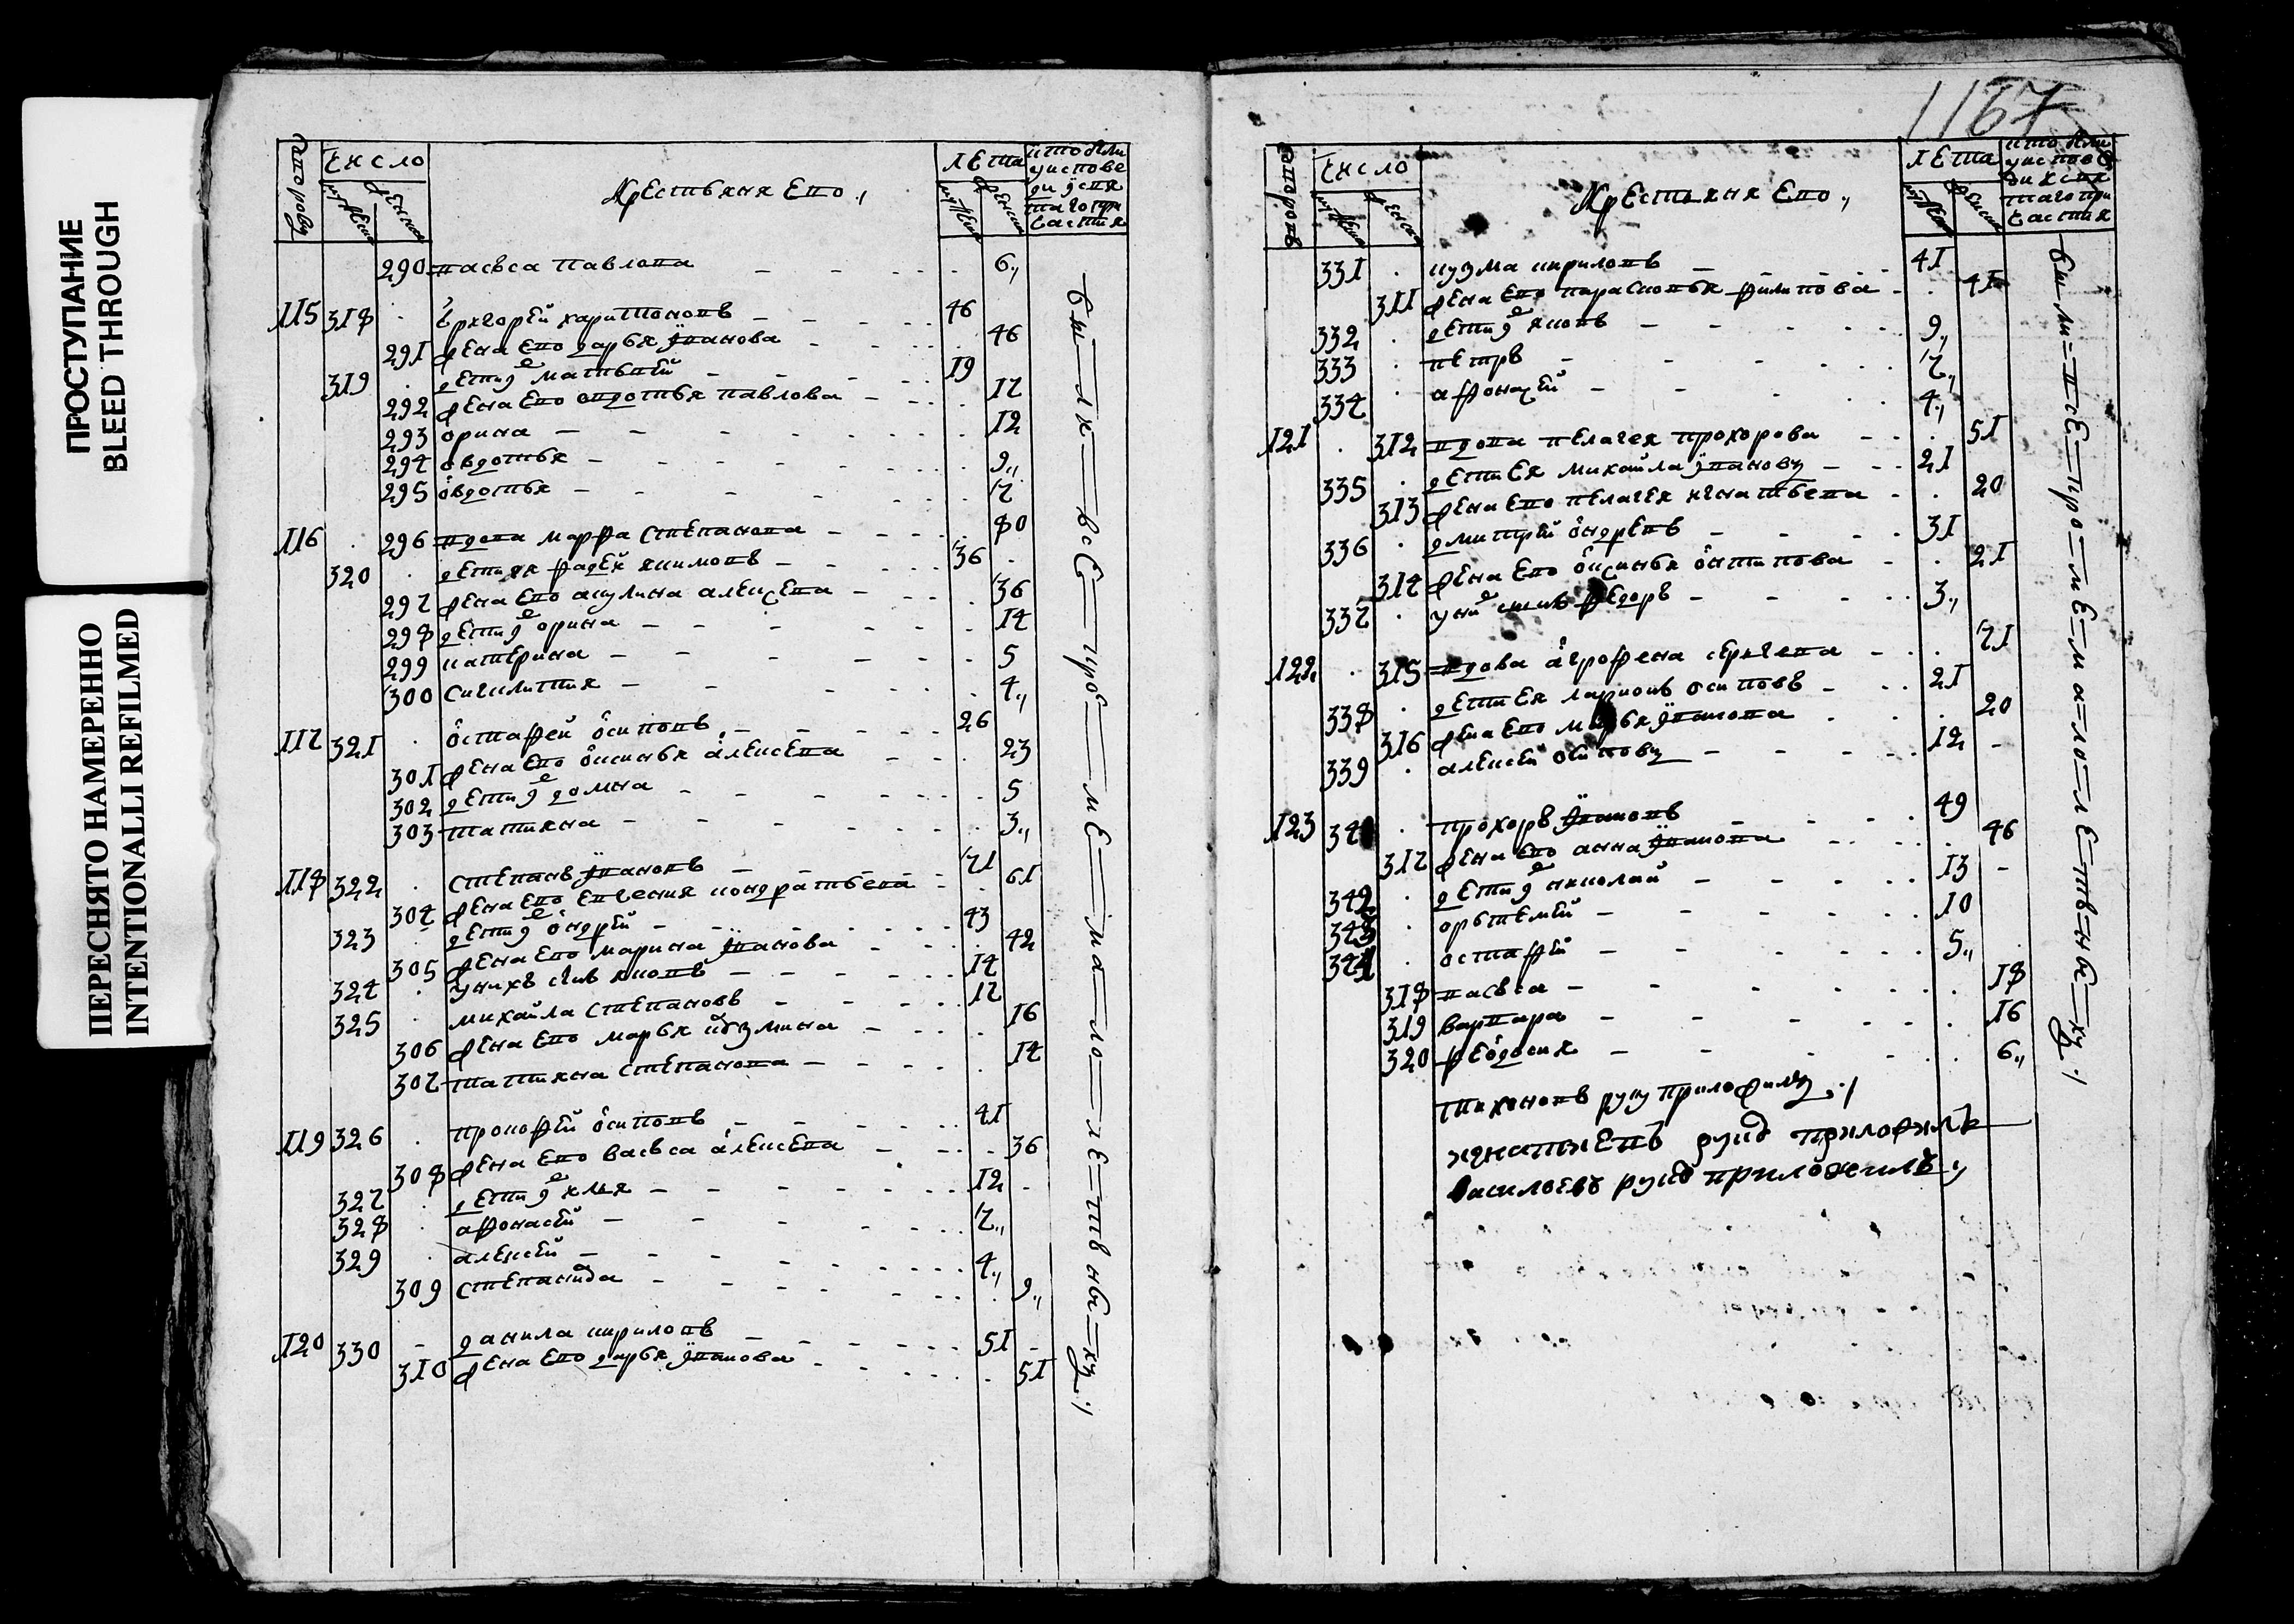 ПРОСТУПАНИЕ
BLEED THROUGH
ПЕРЕСНЯТО НАМЕРЕННО
INTENTIONALLI REFILMED
число
Крестьяня ево
лета
290 васьса павлова 6
115 318 григорей харитоновъ 46
291 жена ево дарья иванова 46
319 дети е матвей 19
292 жена ево овдотья павлова 17
293 орина 12
294 овдотья 9
295 овдотья 7
116 296 вдова марфа степанова 80
320 дети ея фадей якимовъ 36
297 жена ево акулина алексева 36
298 дети е орина 14
299 катерина 5
300 сигклития 4
117 321 остафей осиповъ 26
301 жена ево оксинья алексева 23
302 дети е домна 5
303 татияна 3
118 322 степанъ ивановъ 71
304 жена ево евгения кондратьева 61
323 дети е ондрей 43
305 жена ево марина иванова 42
324 у нихъ сынъ яковъ 14
325 михайла степановъ 17
306 жена ево марья кузмина 16
307 татияна степанова 14
119 326 прокофей осиповъ 41
308 жена ево васьса алексева 36
327 дети е илья 12
328 афонасей 7
329 алексей 4
309 степанида 9
120 330 данила кириловъ 51
310 жена ево дарья иванова 51
вси всє прє мє ма ло лє тв ны хъ
1167
число
Крестьяня ево
лета
331 кузма кириловъ 41
311 жена ево парасковья филипова 41
332 дети е яковъ 9
333 петръ 7
334 афонасей 4
121 312 вдова пелагея прохорова 51
335 дети ея михайла ивановъ 21
313 жена ево пелагея игнатьева 20
336 дмитрей ондревъ 31
314 жена ево оксинья онтипова 21
337 у ний сынъ федоръ 3
122 315 вдова агрофена сергева 71
338 дети ея ларионъ осиповъ 21
316 жена ево марья иванова 20
339 алексей осиповъ 12
123 340 прохоръ ивановъ 49
317 жена ево анна иванова 46
342 дети е николай 13
343 ортемей 10
344 остафей 5
318 васьса 18
319 варвара 16
320 феодосия 6
тихоновъ руку приложилъ
игнатиевъ руку приложилъ
васильевъ руку приложилъ